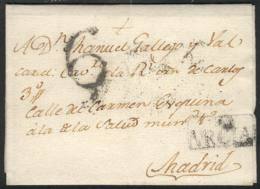 A Dn Manuel Gallego y Val
card. Cavo. de la Rl. orn de Carlos
3o
6
Calle del Carmen Esquina
à la de la Salud num
Madrid